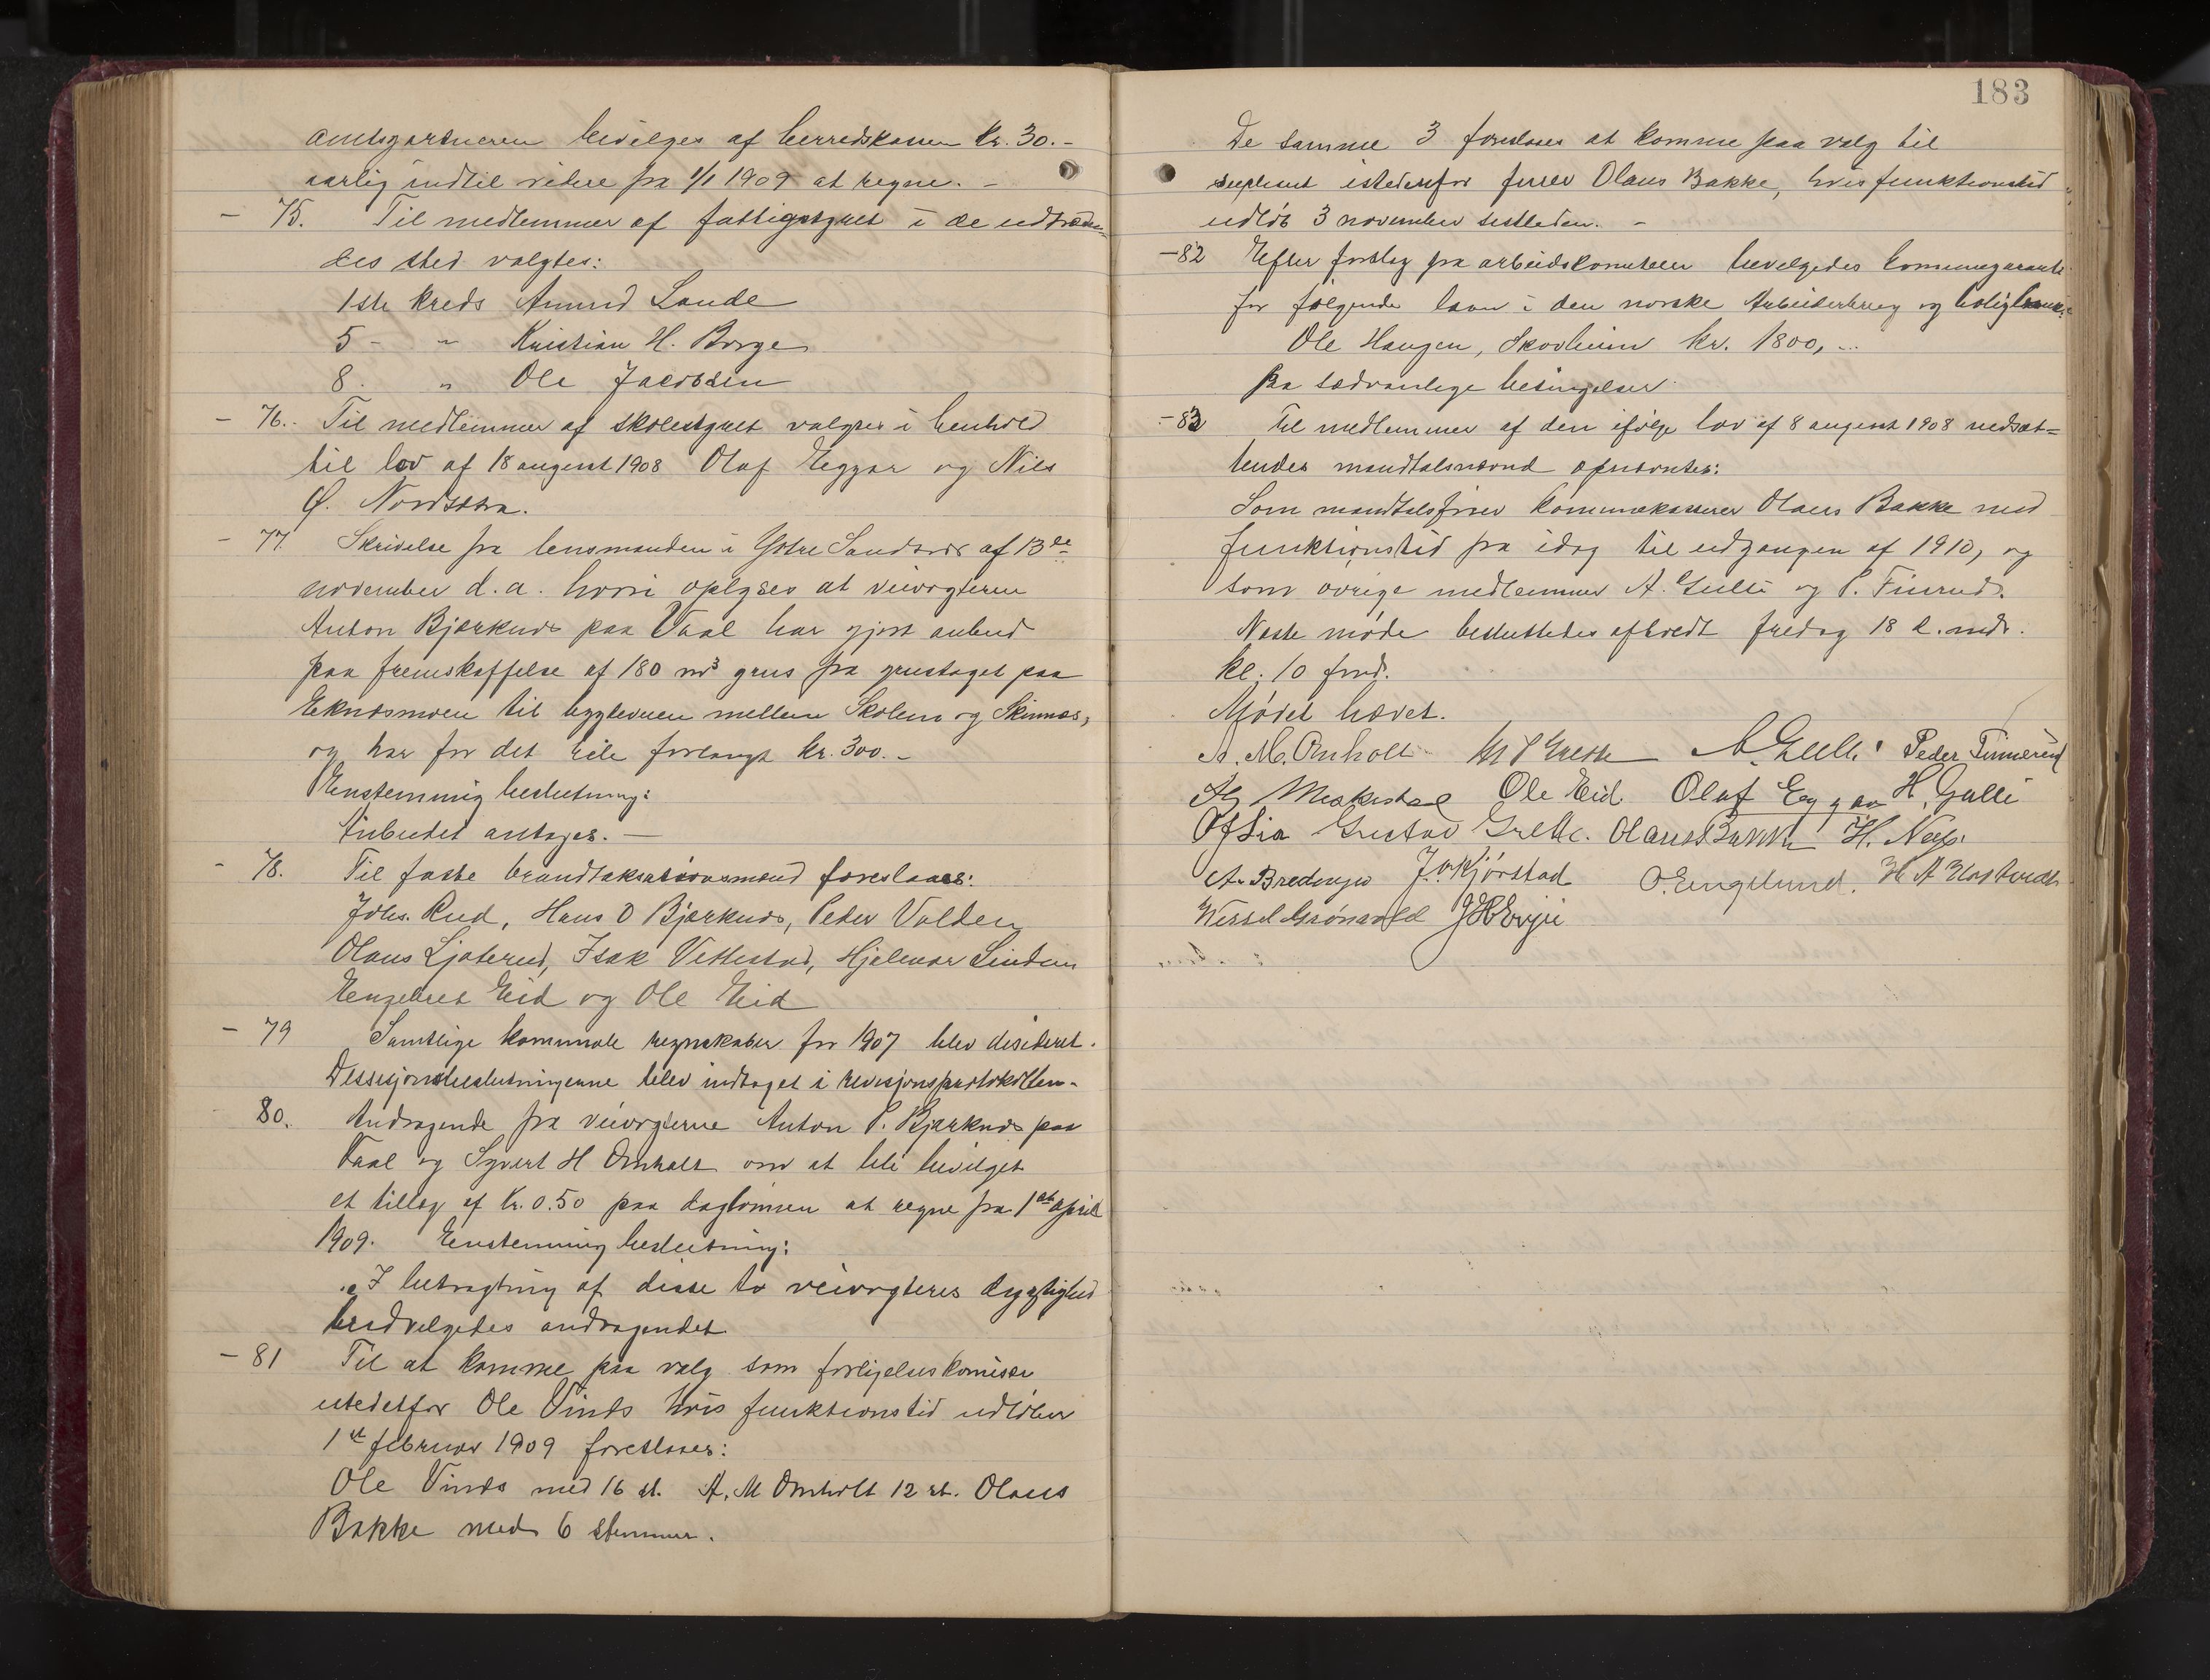 amtsgartneren bevilges af herredskassen kr. 30.-
aarlig indtil videre fra 1/1 1909 at regne. -
- 75. Til medlemmer af fattigstyret i de udtræden-
des sted valgtes:
1ste kreds Amund Lande
5 - " Kristian H. Borge
8. " Ole Jacobsen
- 76. Til medlemmer af skolestyret valgtes i henhold
til lov af 18 august 1908 Olaf Eggar og Nils
Ø. Nordsetra.
- 77. Skrivelse fra lensmanden i Ystre Sandsvær af 13de
november d. a. hvori oplyses at veivogteren
Anton Bjørknes paa Vaal har gjort anbud
paa fremskaffelse af 180 m3 grus fra grustaget paa
Eknesmoen til bygdeveien mellem Skolem og Skinnes,
og har for det hele forlangt kr. 300. -
Enstemmig beslutning:
Anbudet antages. -
- 78. Til faste brandtaksationsmænd foreslaaes:
Johs. Rud, Hans O Bjørknes, Peder Valden
Olaus Ljøterud, Isak Vettestad, Hjelmar Linden
Engebret Eid og Ole Eid
- 79 Samtlige kommunale regnskaber for 1907 blev desideret.
Dessisjonsbeslutningerne blev indtaget i revisjonsprotokollen.
80. Andragende fra veivogterne Anton P. Bjørknes paa
Vaal og Syvert H Omholt om at bli bevilget
et tillæg af kr. 0.50 paa daglønnen at regne fra 1ste april
1909. Enstemmig beslutning:
"I betragtning af disse to veivogteres dygtighed
bevilgedes andragendet
- 81 Til at komme paa valg som forligelseskomissær
istedetfor Ole Vinds hvis funktionstid udløber
1ste februar 1909 foreslaaes:
Ole Vinds med 16 st. A. M Omholt 12 st. Olaus
Bakke med 6 stemmer.
183
De samme 3 foreslaaes at komme paa valg til
supleant istedenfor Olaus Bakke, hvis funktionstid
udløb 3 november sistleden. -
- 82 Efter forslag fra arbeidskomiteen bevilgedes kommunegaranti
for følgende laan i den norske Arbeiderbrug og boligbank:
Ole Haugen, Skovheim kr. 1800,-
Paa sædvanlige betingelser.
- 83 Til medlemmer af den ifølge lov af 8 august 1908 nedsæt-
tendes mandtalsnævnd opnævntes:
Som mandtalsfører kommunekasserer Olaus Bakke med
funktionstid fra idag til udgangen af 1910, og
som øvrige medlemmer A. Gulli og P. Finnerud.
Næste møde besluttedes afholdt fredag 18 d. md.
kl. 10 fmd.
Mødet hævet.
A. M. Omholt A. Gulli Peder Finnerud
Ole Eid Olaf Eggar H. Gulli
O Lia Gustav Grette. Olaus Bakke H. Næss
A. Bredesen J. O. Kjørstad O. Engelund.
Wessel Grønvold J H Evju